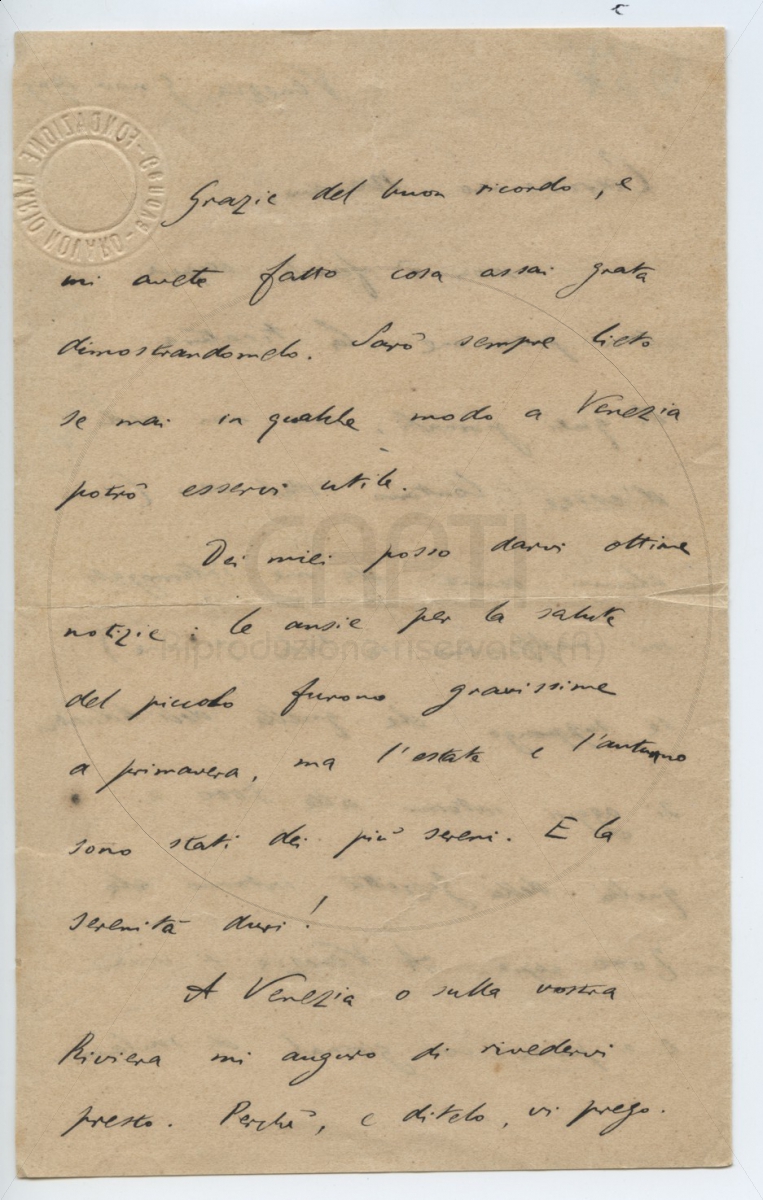 Grazie del buon ricordo, e
mi avete fatto cosa assai grata
dimostrandomelo. Sarò sempre lieto
se mai in qualche modo a Venezia
potrò esservi utile.
Dei miei posso darvi ottime
notizie: le ansie per la salute
del piccolo furono gravissime
a primavera, ma l'estate e l'autunno
sono stati dei più sereni. E la
serenità duri!
A Venezia o sulla vostra
Riviera mi auguro di rivedervi
presto. Perchè, e ditelo, vi prego.
FONDAZIONE MARIO NOVARO - GENOVA
CARTI
(Riproduzione riservata)